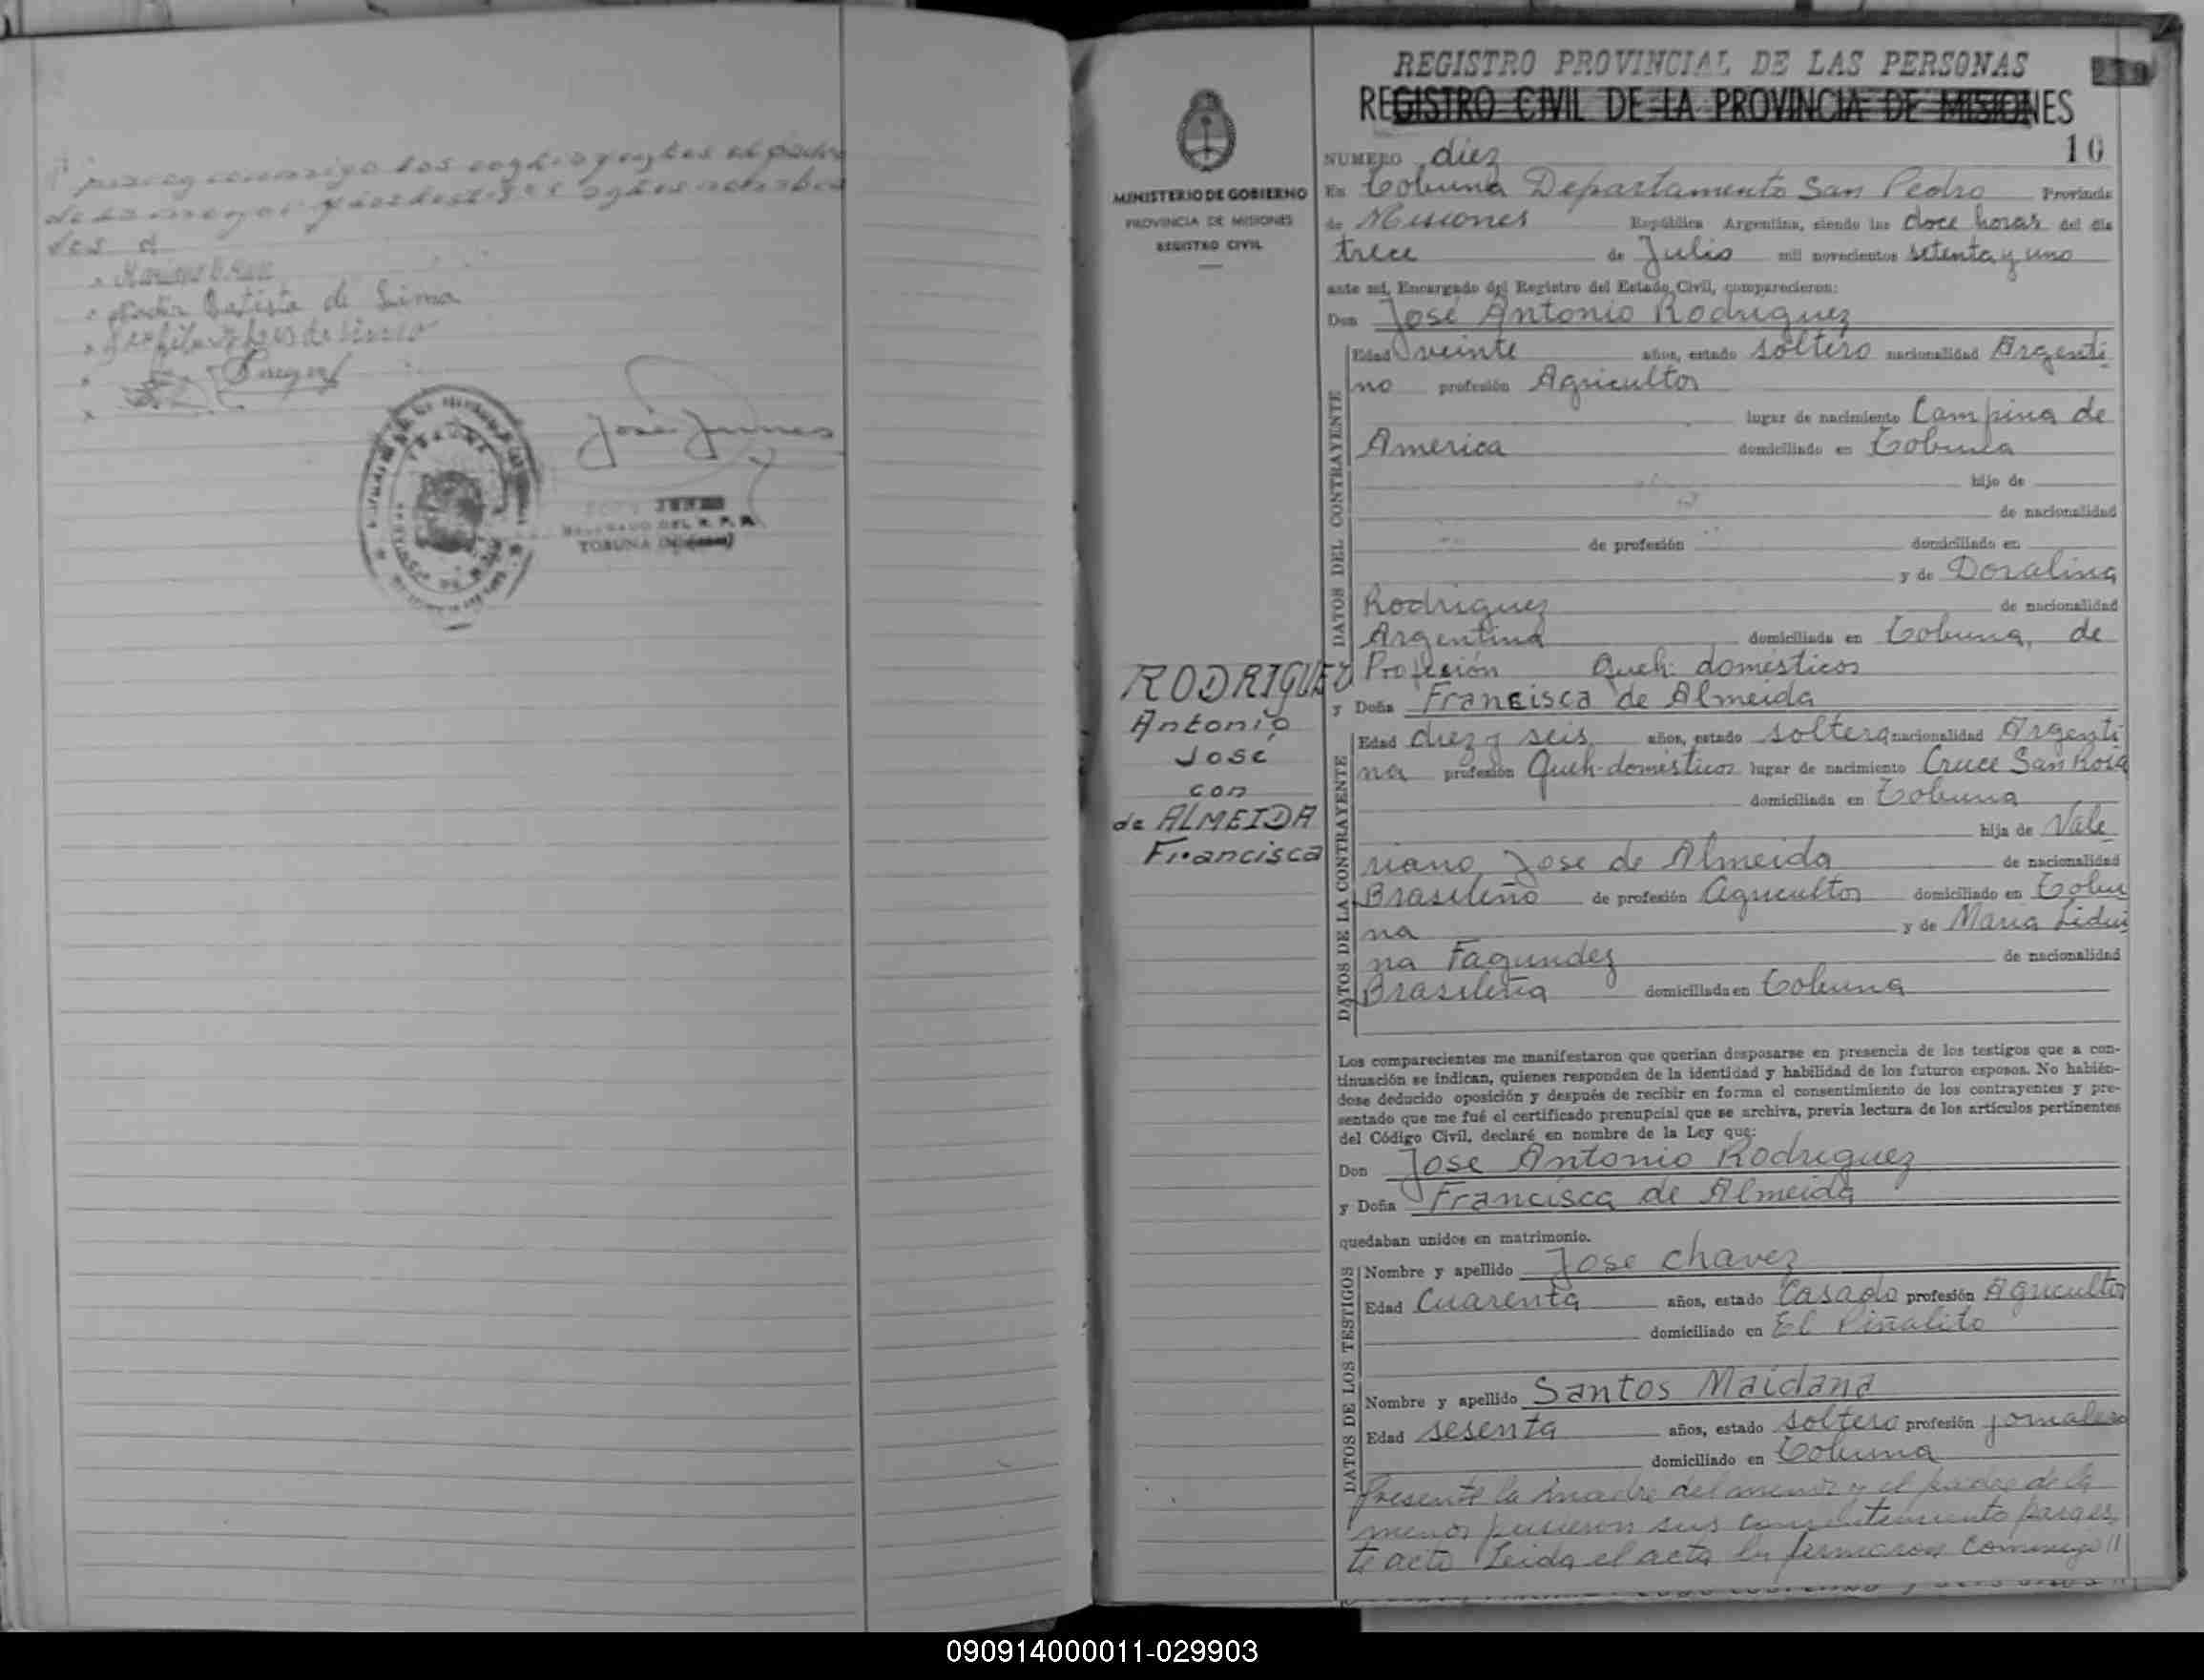 de la menor
des
Batista de Lima
José Junes
TOBUNA (Misiones)
REGISTRO PROVINCIAL DE LAS PERSONAS
REGISTRO CIVIL DE LA PROVINCIA DE MISIONES
10
MINISTERIO DE GOBIERNO
PROVINCIA DE MISIONES
REGISTRO CIVIL
RODRIGUEZ
Antonio
José
con
de ALMEIDA
Francisca
NUMERO diez
En Tobuna Departamento San Pedro Provincia
de Misiones República Argentina, siendo las doce horas del día
trece de Julio mil novecientos setenta y uno
ante mí, Encargado del Registro del Estado Civil, comparecieron:
Don José Antonio Rodriguez
DATOS DEL CONTRAYENTE
Edad veinte años, estado soltero nacionalidad Argenti
no profesión Agricultor
lugar de nacimiento Campina de
America domiciliado en Tobuna
hijo de
de nacionalidad
de profesión domiciliado en
y de Doralina
Rodriguez de nacionalidad
Argentina domiciliada en Tobuna, de
Profesión Queh. domésticos
y Doña Francisca de Almeida
DATOS DE LA CONTRAYENTE
Edad diez y seis años, estado soltera nacionalidad Argenti
na profesión Queh. domésticos lugar de nacimiento Cruce San Rosa
domiciliada en Tobuna
hija de Vale
riano Jose de Almeida de nacionalidad
Brasileño de profesión Agricultor domiciliado en Tobu
na y de Maria Lidui
na Fagundez de nacionalidad
Brasileña domiciliada en Tobuna
Los comparecientes me manifestaron que querían desposarse en presencia de los testigos que a con-
tinuación se indican, quienes responden de la identidad y habilidad de los futuros esposos. No habién-
dose deducido oposición y después de recibir en forma el consentimiento de los contrayentes y pre-
sentado que me fué el certificado prenupcial que se archiva, previa lectura de los artículos pertinentes
del Código Civil, declaré en nombre de la Ley que:
Don Jose Antonio Rodriguez
y Doña Francisca de Almeida
quedaban unidos en matrimonio.
DATOS DE LOS TESTIGOS
Nombre y apellido Jose Chavez
Edad Cuarenta años, estado Casado profesión Agricultor
domiciliado en El Piñalito
Nombre y apellido Santos Maidana
Edad sesenta años, estado soltero profesión jornalero
domiciliado en Tobuna
Presente la madre del menor y el padre de la
menor pusieron sus consentimiento para es
te acto Leida el acta la firmaron conmigo //
090914000011-029903